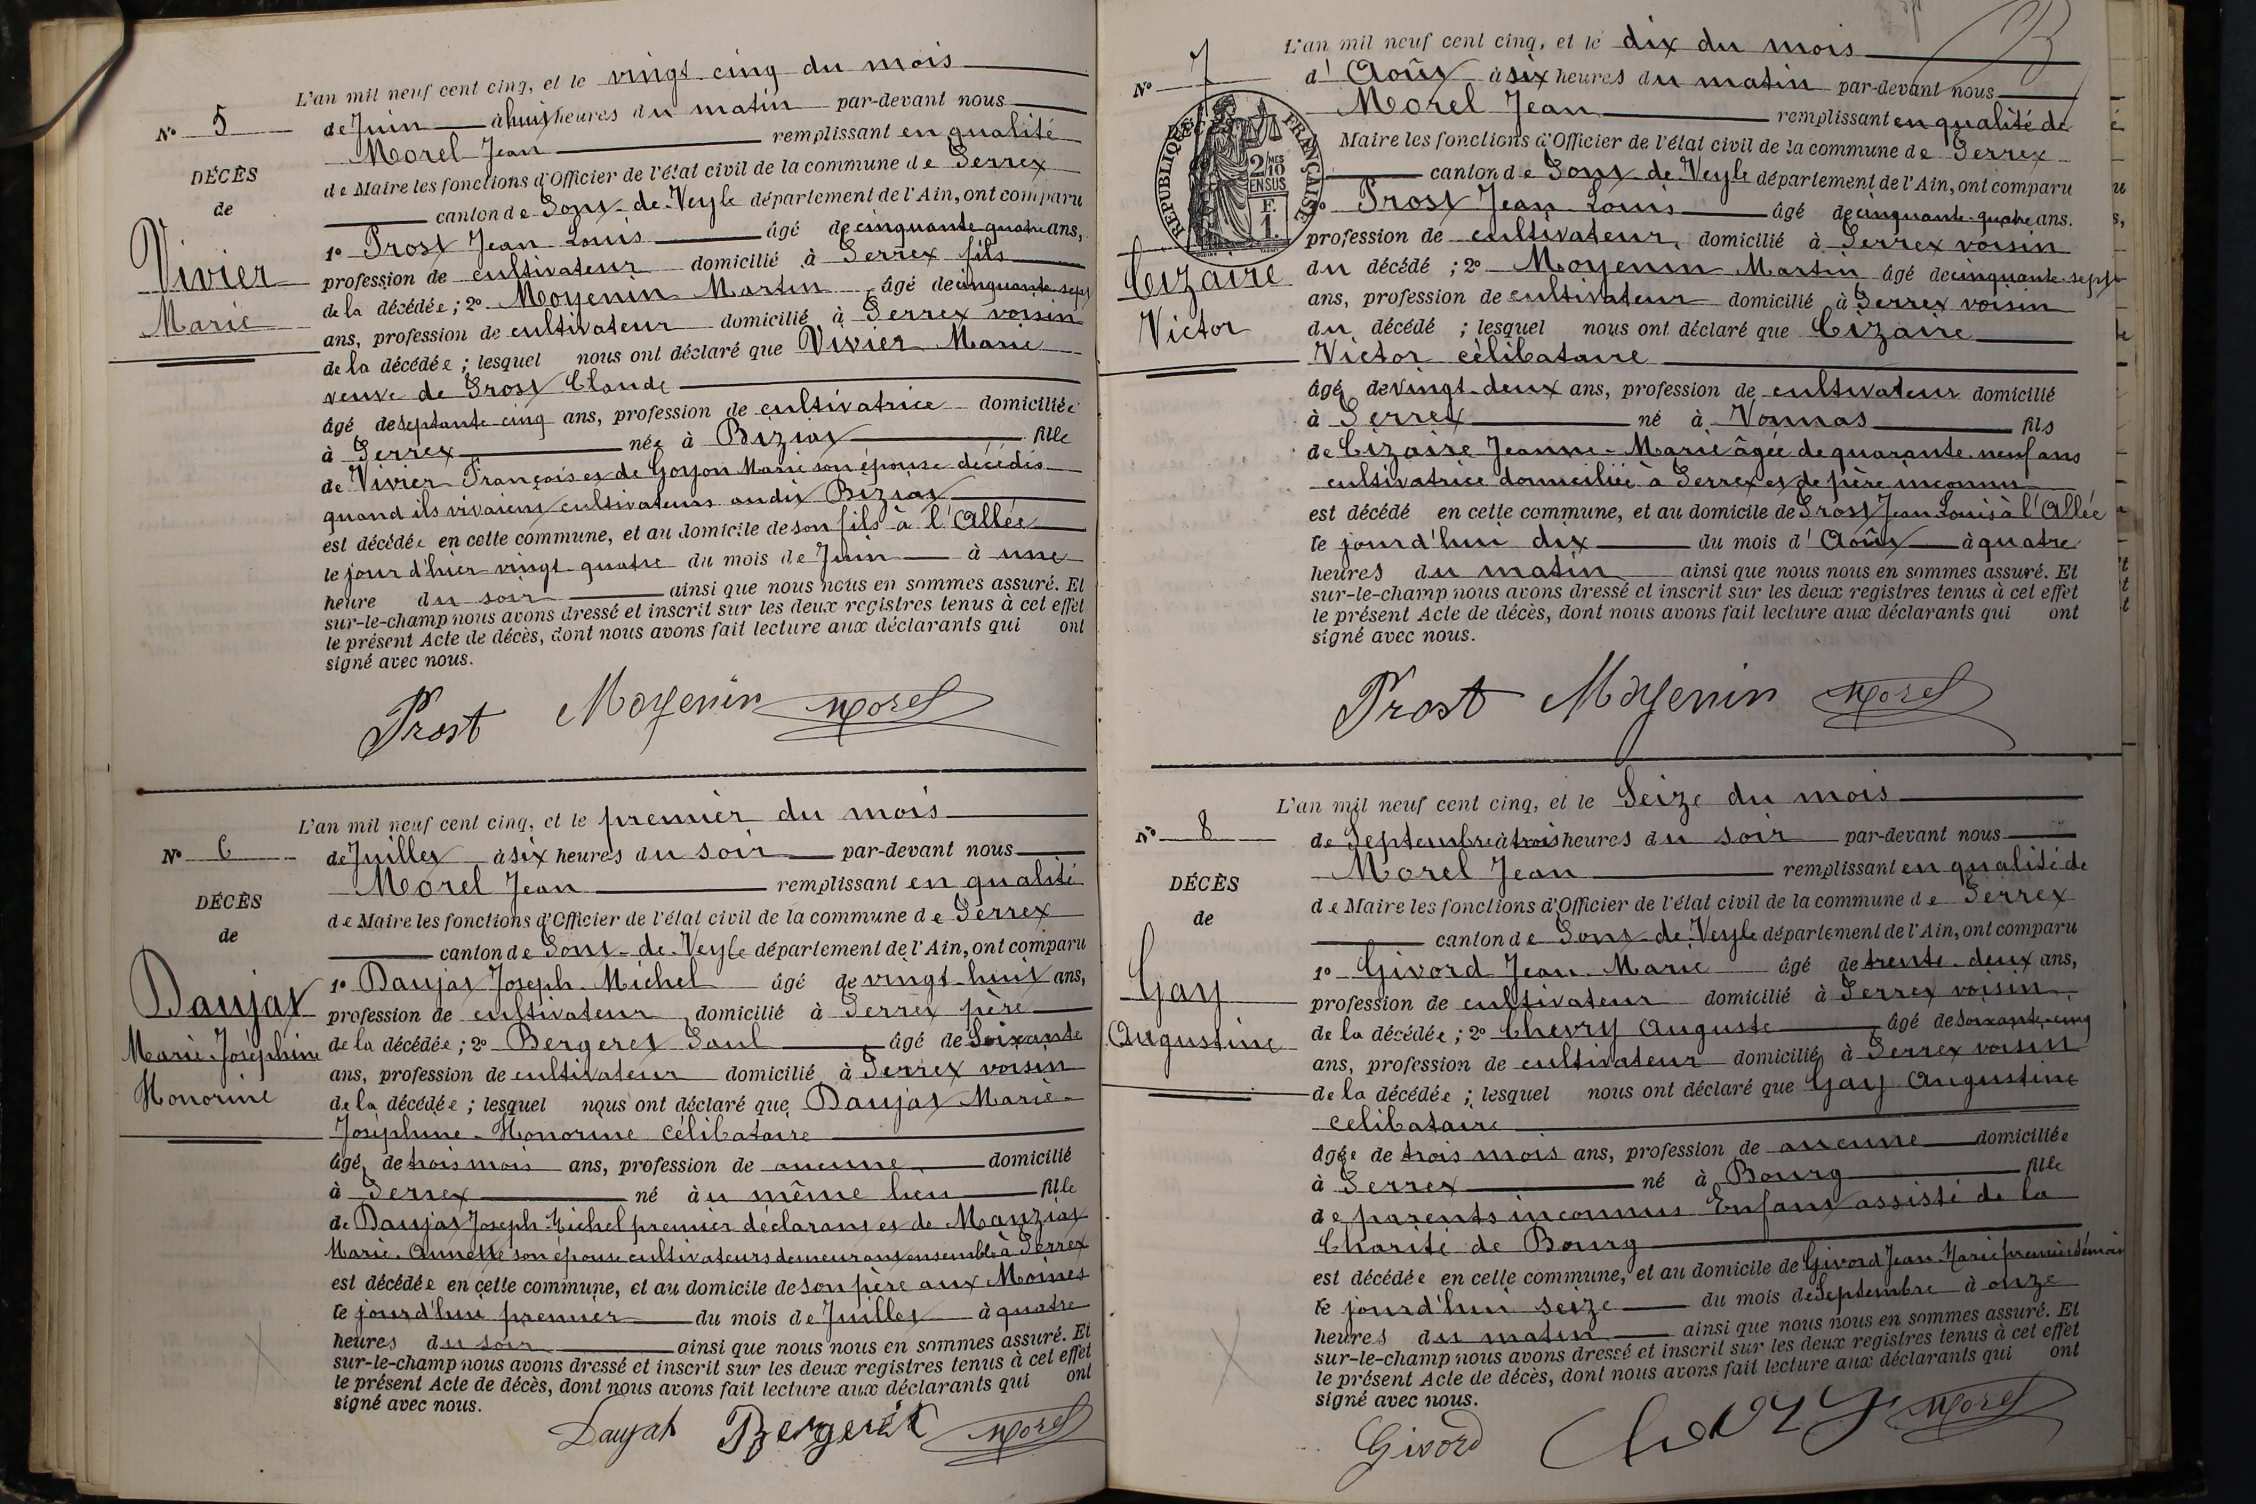 L'an mil neuf cent cinq, et le vingt-cinq du mois
N° 5
de Juin à huit heures du matin par-devant nous
Morel Jean remplissant en qualité
DÉCÈS
de Maire les fonctions d'Officier de l'état civil de la commune de Perrex
de
canton de Pont-de-Veyle département de l'Ain, ont comparu
1° Prost Jean Louis âgé de cinquante-quatre ans,
Vivier
profession de cultivateur domicilié à Perrex fils
de la décédée ; 2° Moyenin Martin âgé de cinquante-sept
Marie
ans, profession de cultivateur domicilié à Perrex voisin
de la décédée ; lesquel nous ont déclaré que Vivier Marie
veuve de Prost Claude
âgé de septante-cinq ans, profession de cultivatrice domiciliée
à Perrex née à Biziat fille
de Vivier François et de Goyon Marie son épouse décédés
quand ils vivaient cultivateurs audit Biziat
est décédée en cette commune, et au domicile de son fils à l'Allée
le jour d'hier vingt-quatre du mois de Juin à une
heure du soir ainsi que nous nous en sommes assuré. Et
sur-le-champ nous avons dressé et inscrit sur les deux registres tenus à cet effet
le présent Acte de décès, dont nous avons fait lecture aux déclarants qui ont
signé avec nous.
Prost Moyenin Morel
L'an mil neuf cent cinq, et le premier du mois
N° 6
de Juillet à six heures du soir par-devant nous
Morel Jean remplissant en qualité
DÉCÈS
de Maire les fonctions d'Officier de l'état civil de la commune de Perrex
de
canton de Pont-de-Veyle département de l'Ain, ont comparu
1° Daujat Joseph-Michel âgé de vingt-huit ans,
Daujat
profession de cultivateur domicilié à Perrex père
Marie-Joséphine
de la décédée ; 2° Bergeret Paul âgé de Soixante
ans, profession de cultivateur domicilié à Perrex voisin
Honorine
de la décédée ; lesquel nous ont déclaré que Daujat Marie-
Joséphine-Honorine célibataire
âgé de trois mois ans, profession de aucune domicilié
à Perrex né à u même lieu fille
de Daujat Joseph-Michel premier déclarant et de Manziat
Marie-Annette son épouse cultivateurs demeurant ensemble à Perrex
est décédée en cette commune, et au domicile de son père aux Moines
le jourd'hui premier du mois de Juillet à quatre
heures du soir ainsi que nous nous en sommes assuré. Et
sur-le-champ nous avons dressé et inscrit sur les deux registres tenus à cet effet
le présent Acte de décès, dont nous avons fait lecture aux déclarants qui ont
signé avec nous.
Daujat Bergeret Morel
L'an mil neuf cent cinq, et le dix du mois
N° 7
d'Août à six heures du matin par-devant nous
Morel Jean remplissant en qualité de
Maire les fonctions d'Officier de l'état civil de la commune de Perrex
RÉPUBLIQUE FRANÇAISE
2/10
EN SUS
F.
1.
canton de Pont-de-Veyle département de l'Ain, ont comparu
1° Prost Jean Louis âgé de cinquante-quatre ans.
profession de cultivateur domicilié à Perrex voisin
Cizaire
du décédé ; 2° Moyenin Martin âgé de cinquante-sept
ans, profession de cultivateur domicilié à Perrex voisin
Victor
du décédé ; lesquel nous ont déclaré que Cizaire
Victor célibataire
âgé de vingt-deux ans, profession de cultivateur domicilié
à Perrex né à Vonnas fils
de Cizaire Jeanne-Marie âgée de quarante-neuf ans
cultivatrice domiciliée à Perrex et de père inconnu
est décédé en cette commune, et au domicile de Prost Jean Louis à l'Allée
le jourd'hui dix du mois d'Août à quatre
heures du matin ainsi que nous nous en sommes assuré. Et
sur-le-champ nous avons dressé et inscrit sur les deux registres tenus à cet effet
le présent Acte de décès, dont nous avons fait lecture aux déclarants qui ont
signé avec nous.
Prost Moyenin Morel
L'an mil neuf cent cinq, et le Seize du mois
N° 8
de Septembre à trois heures du soir par-devant nous
Morel Jean remplissant en qualité de
DÉCÈS
de Maire les fonctions d'Officier de l'état civil de la commune de Perrex
de
canton de Pont-de-Veyle département de l'Ain, ont comparu
1° Givord Jean-Marie âgé de trente-deux ans,
Gay
profession de cultivateur domicilié à Perrex voisin
Augustine
de la décédée ; 2° Chevry Auguste âgé de soixante-cinq
ans, profession de cultivateur domicilié à Perrex voisin
de la décédée ; lesquel nous ont déclaré que Gay Augustine
célibataire
âgée de trois mois ans, profession de aucune domiciliée
à Perrex né à Bourg fille
de parents inconnus Enfant assisté de la
Charité de Bourg
est décédée en cette commune, et au domicile de Givord Jean-Marie premier témoin
le jourd'hui seize du mois de Septembre à onze
heures du matin ainsi que nous nous en sommes assuré. Et
sur-le-champ nous avons dressé et inscrit sur les deux registres tenus à cet effet
le présent Acte de décès, dont nous avons fait lecture aux déclarants qui ont
signé avec nous.
Givord Chevry Morel